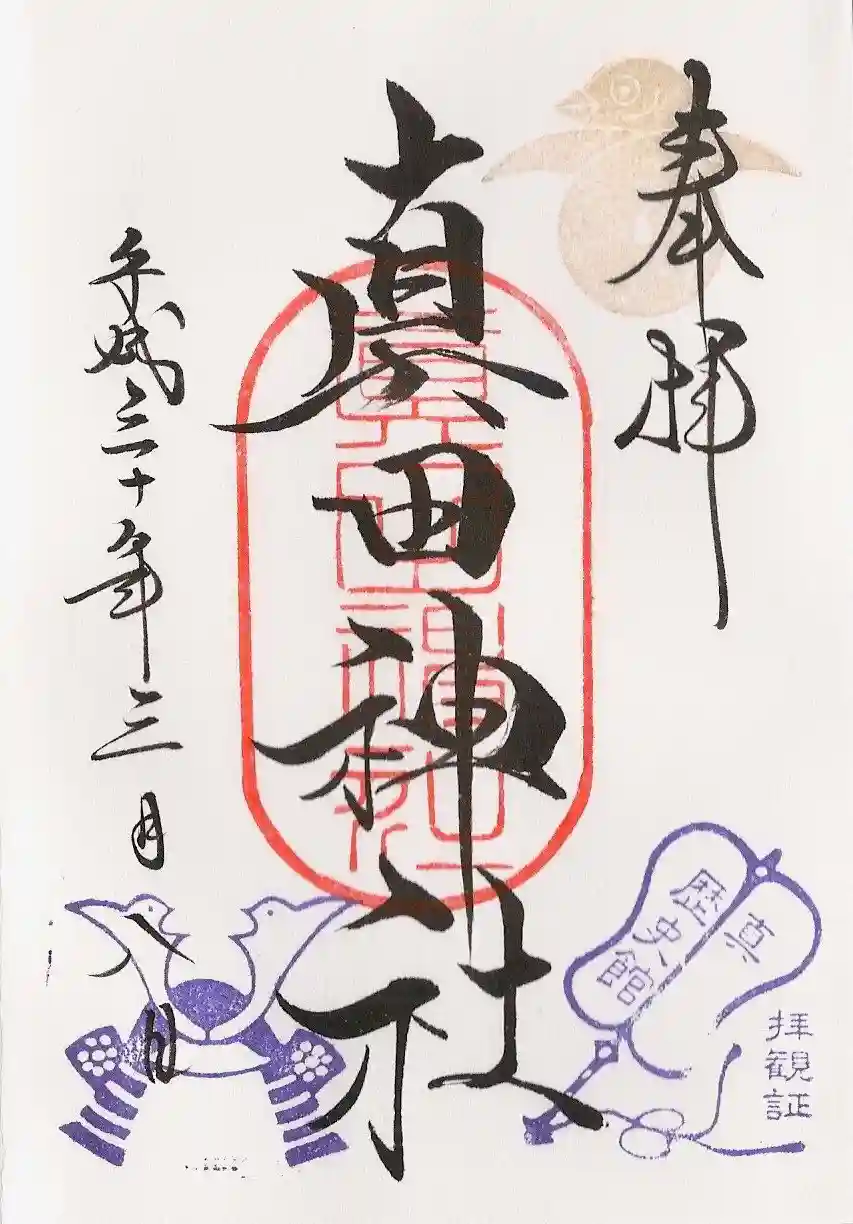 奉拝
真田神社
平成三十年三月八日
歴史館
拝観証